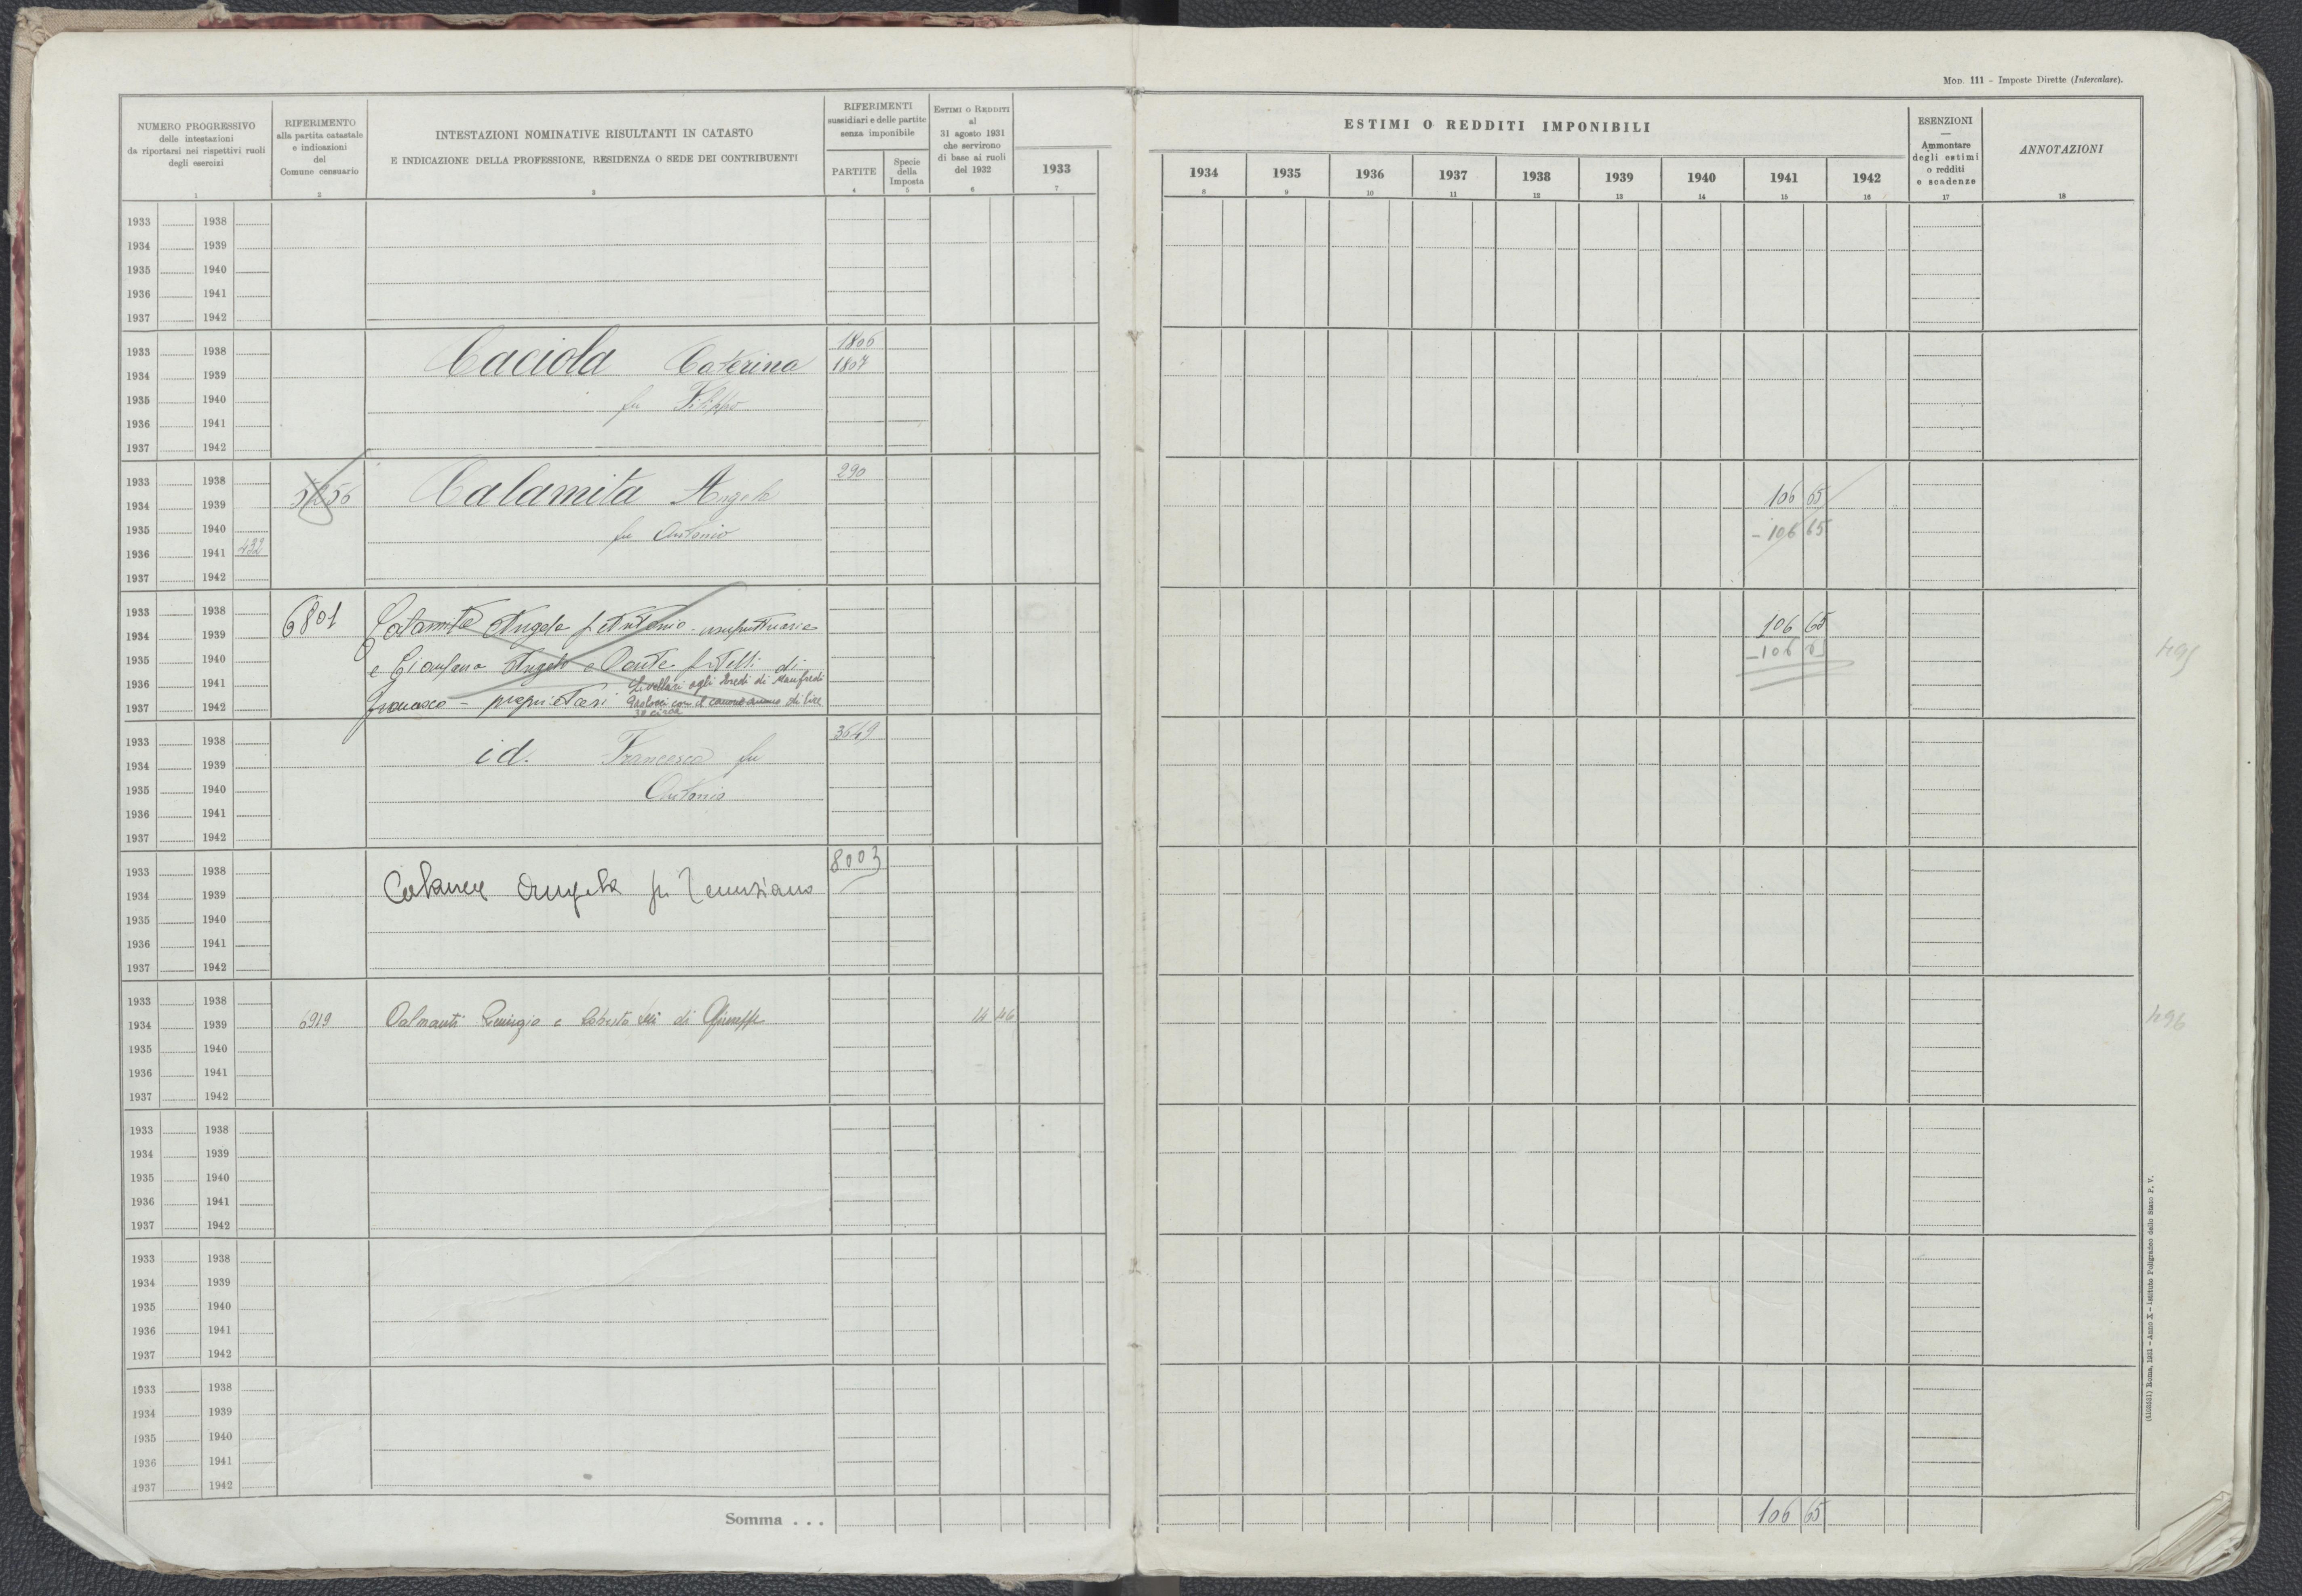 Mod. 111 - Imposte Dirette (Intercalare).
NUMERO PROGRESSIVO
delle intestazioni
da riportarsi nei rispettivi ruoli
degli esercizi
1
RIFERIMENTO
alla partita catastale
e indicazioni
del
Comune censuario
2
INTESTAZIONI NOMINATIVE RISULTANTI IN CATASTO
E INDICAZIONE DELLA PROFESSIONE, RESIDENZA O SEDE DEI CONTRIBUENTI
3
RIFERIMENTI
sussidiari e delle partite
senza imponibile
PARTITE
4
Specie
della
Imposta
5
ESTIMI O REDDITI
al
31 agosto 1931
che servirono
di base ai ruoli
del 1932
6
1933
7
ESTIMI O REDDITI IMPONIBILI
1934 1935 1936 1937 1938 1939 1940 1941 1942
8 9 10 11 12 13 14 15 16
ESENZIONI
—
Ammontare
degli estimi
o redditi
e scadenze
17
ANNOTAZIONI
18
1933 1938
1934 1939
1935 1940
1936 1941
1937 1942
1806
1933 1938 Caciola Caterina 1807
1934 1939
1935 1940 fu Filippo
1936 1941
1937 1942
1933 1938 290
1934 1939 Calamita Angela 106 65
1935 1940 fu Antonio - 106 65
1936 1941 432
1937 1942
1933 1938 6801 Calamita Angela f Antonio - usufruttuaria 106 65
1934 1939
1935 1940 e Angelo e Dante fratelli di - 106 65 495
1936 1941 Livellari agli Eredi di Manfredi
1937 1942 Francesco - proprietari Paolozzi con il canone annuo di lire
30 circa
1933 1938 id. Francesca fu 3649
1934 1939
1935 1940 Antonio
1936 1941
1937 1942
1933 1938 8003
1934 1939 Angela fu
1935 1940
1936 1941
1937 1942
1933 1938
1934 1939 6919 Remigio e di Giuseppe 14 46 496
1935 1940
1936 1941
1937 1942
1933 1938
1934 1939
1935 1940
1936 1941
1937 1942
1933 1938
1934 1939
1935 1940
1936 1941
1937 1942
1933 1938
1934 1939
1935 1940
1936 1941
1937 1942
Somma . . . 106 65
Roma, 1931 - Anno X - Istituto Poligrafico dello Stato P. V.